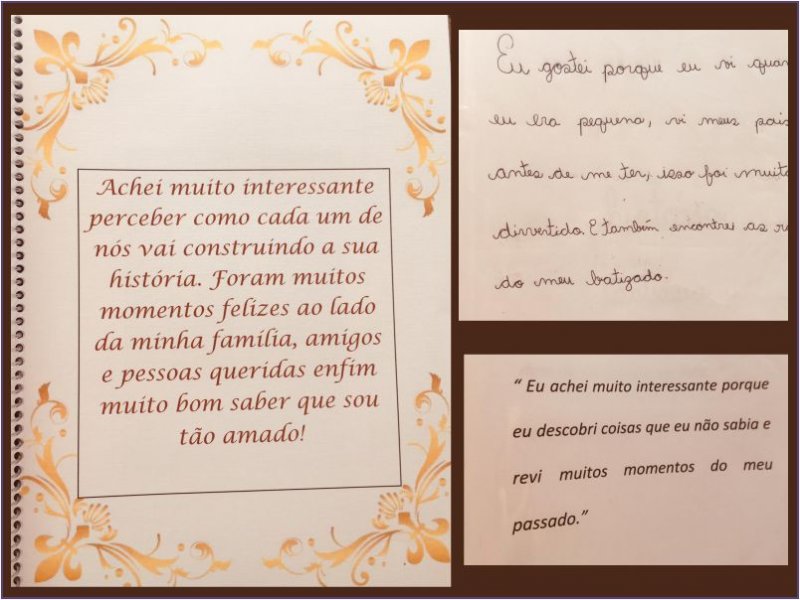 Achei muito interessante
perceber como cada um de
nós vai construindo a sua
história. Foram muitos
momentos felizes ao lado
da minha família, amigos
e pessoas queridas enfim
muito bom saber que sou
tão amado!
Eu gostei porque eu vi
eu era pequena, vi meus pais
antes de me ter, isso foi muito
divertido. E também encontrei as
do meu batizado.
“ Eu achei muito interessante porque
eu descobri coisas que eu não sabia e
revi muitos momentos do meu
passado.”